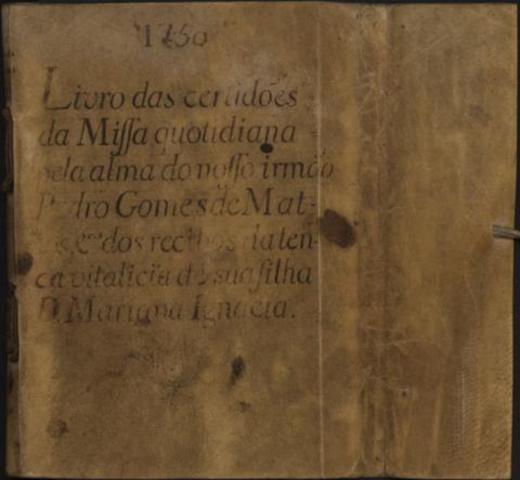 1750
Livro das certidões
da Miſſa quotidiana
pela alma do noſſo irmão
Pedro Gomes de Mat-
dos recibos da ten-
ca vitalicia de sua filha
D. Mariana Ignacia.